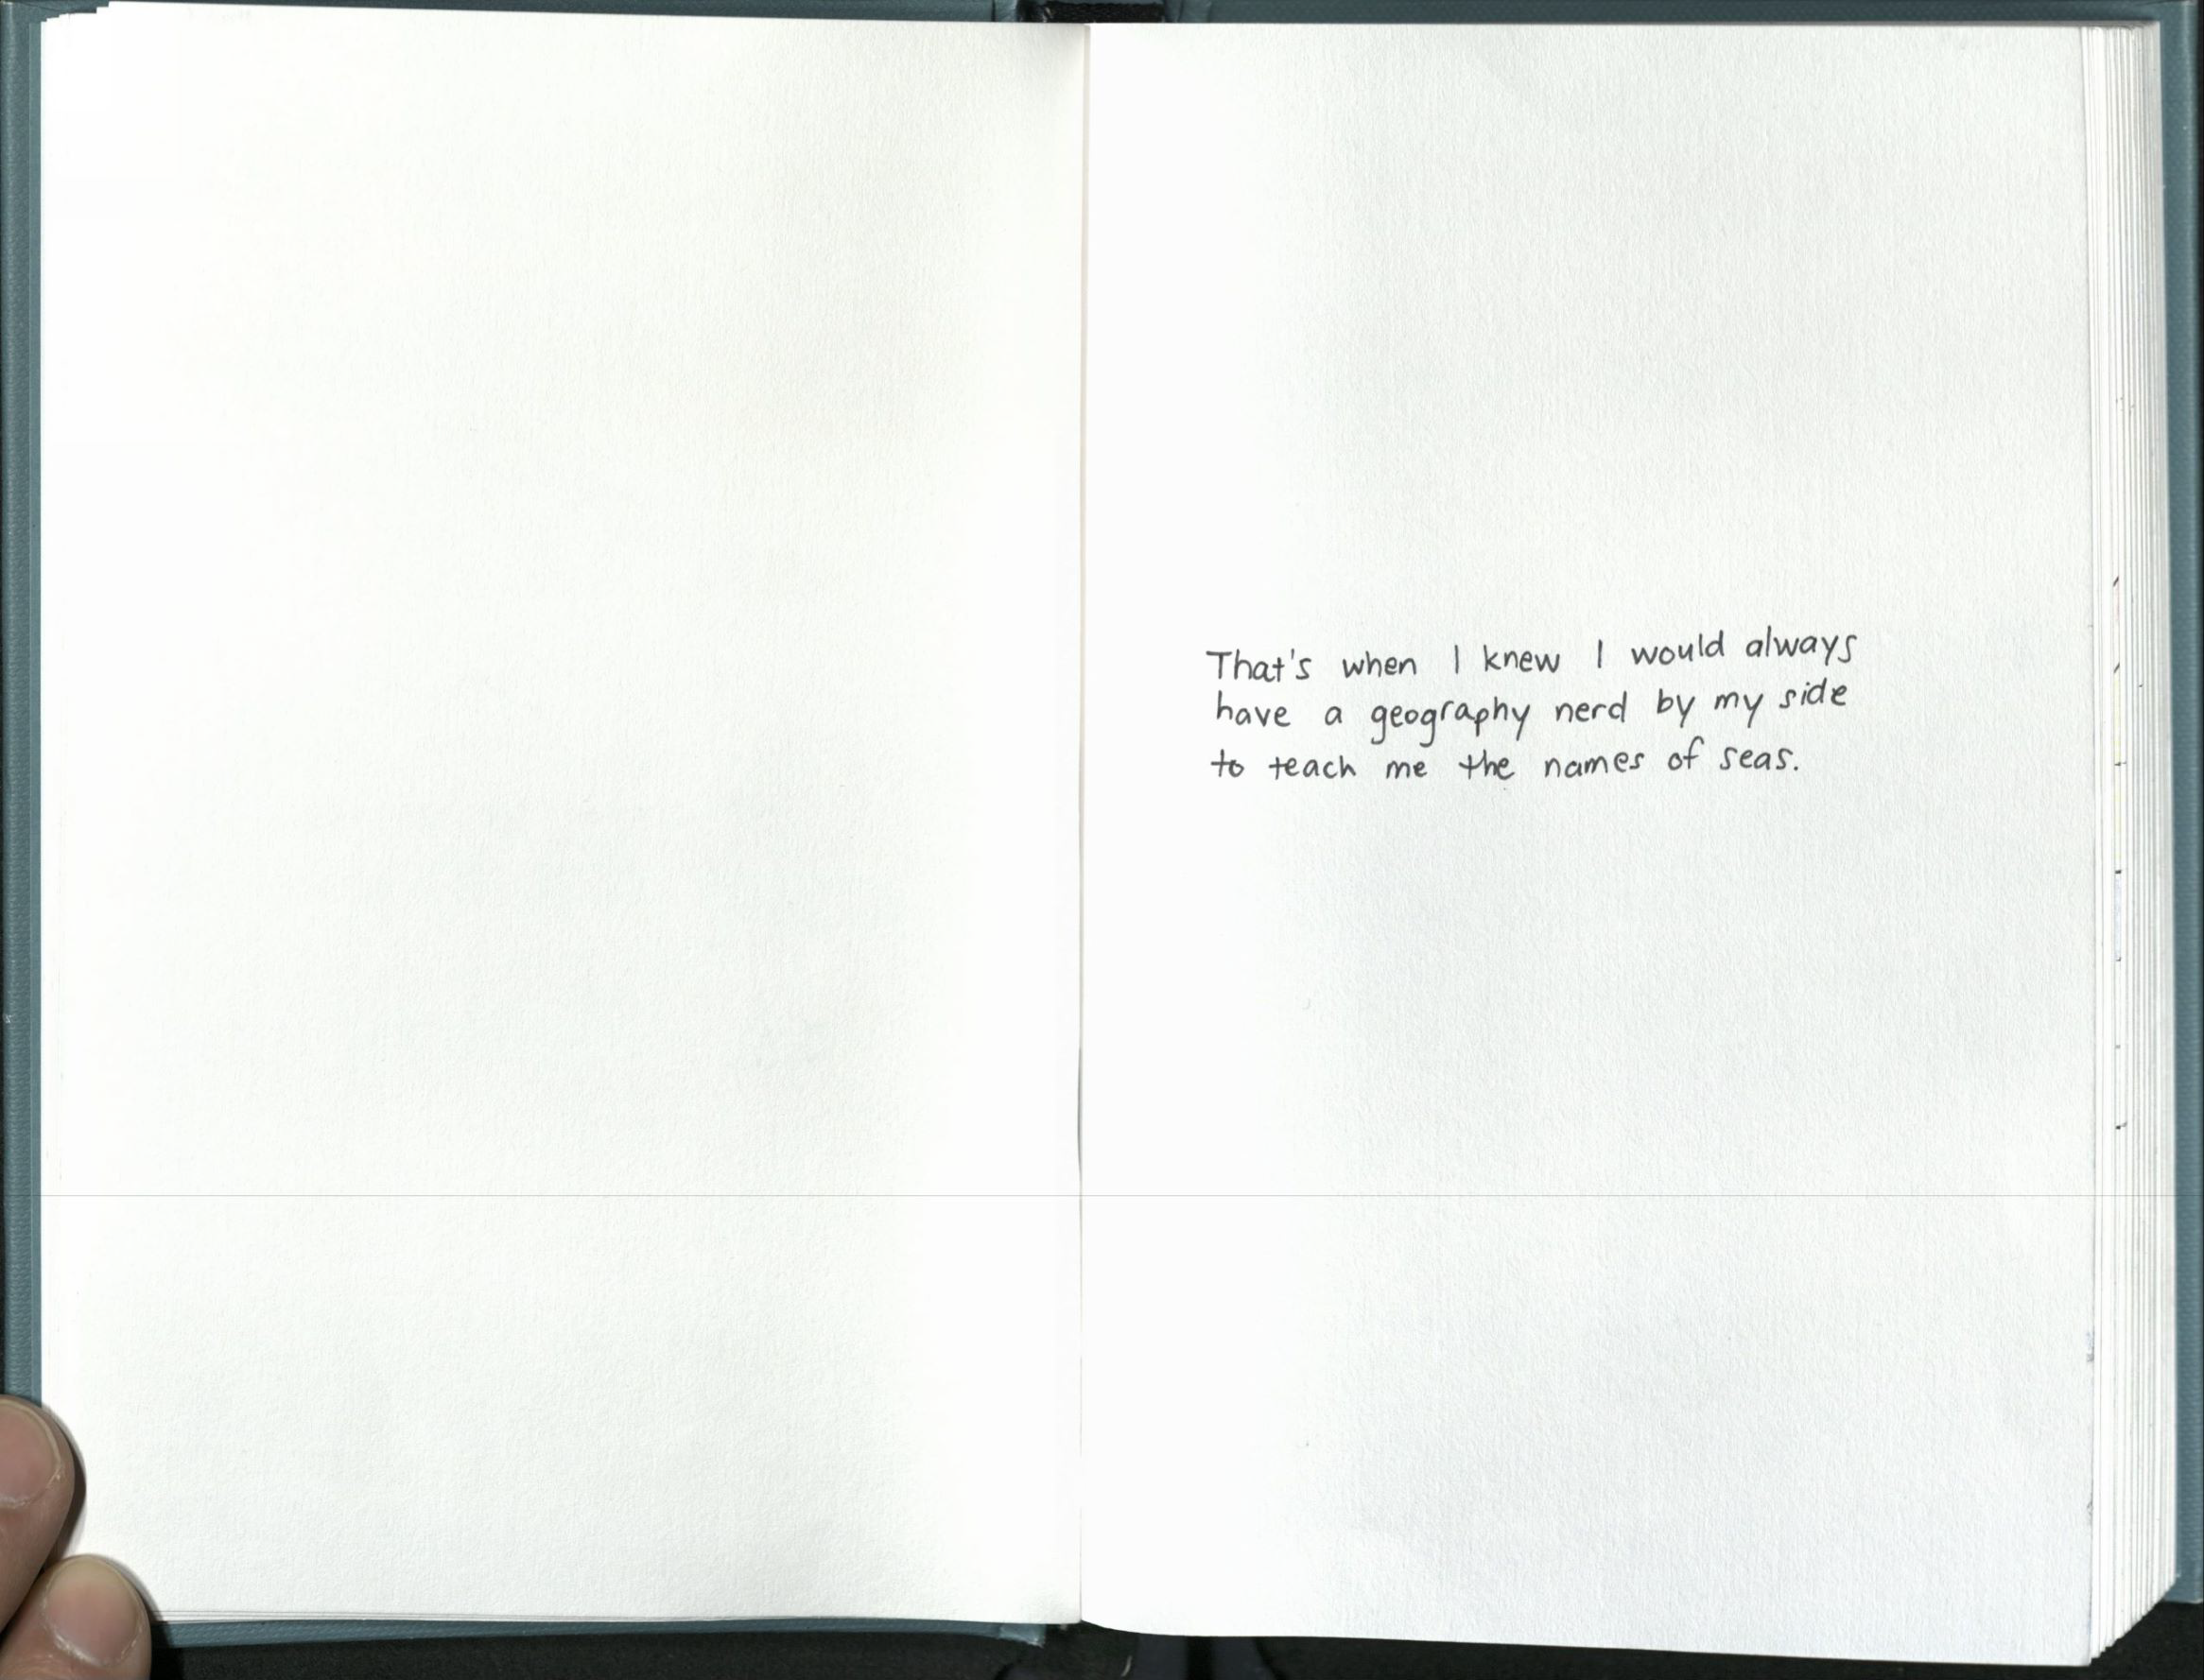 That's when I knew I would always
have a geography nerd by my side
to teach me the names of seas.